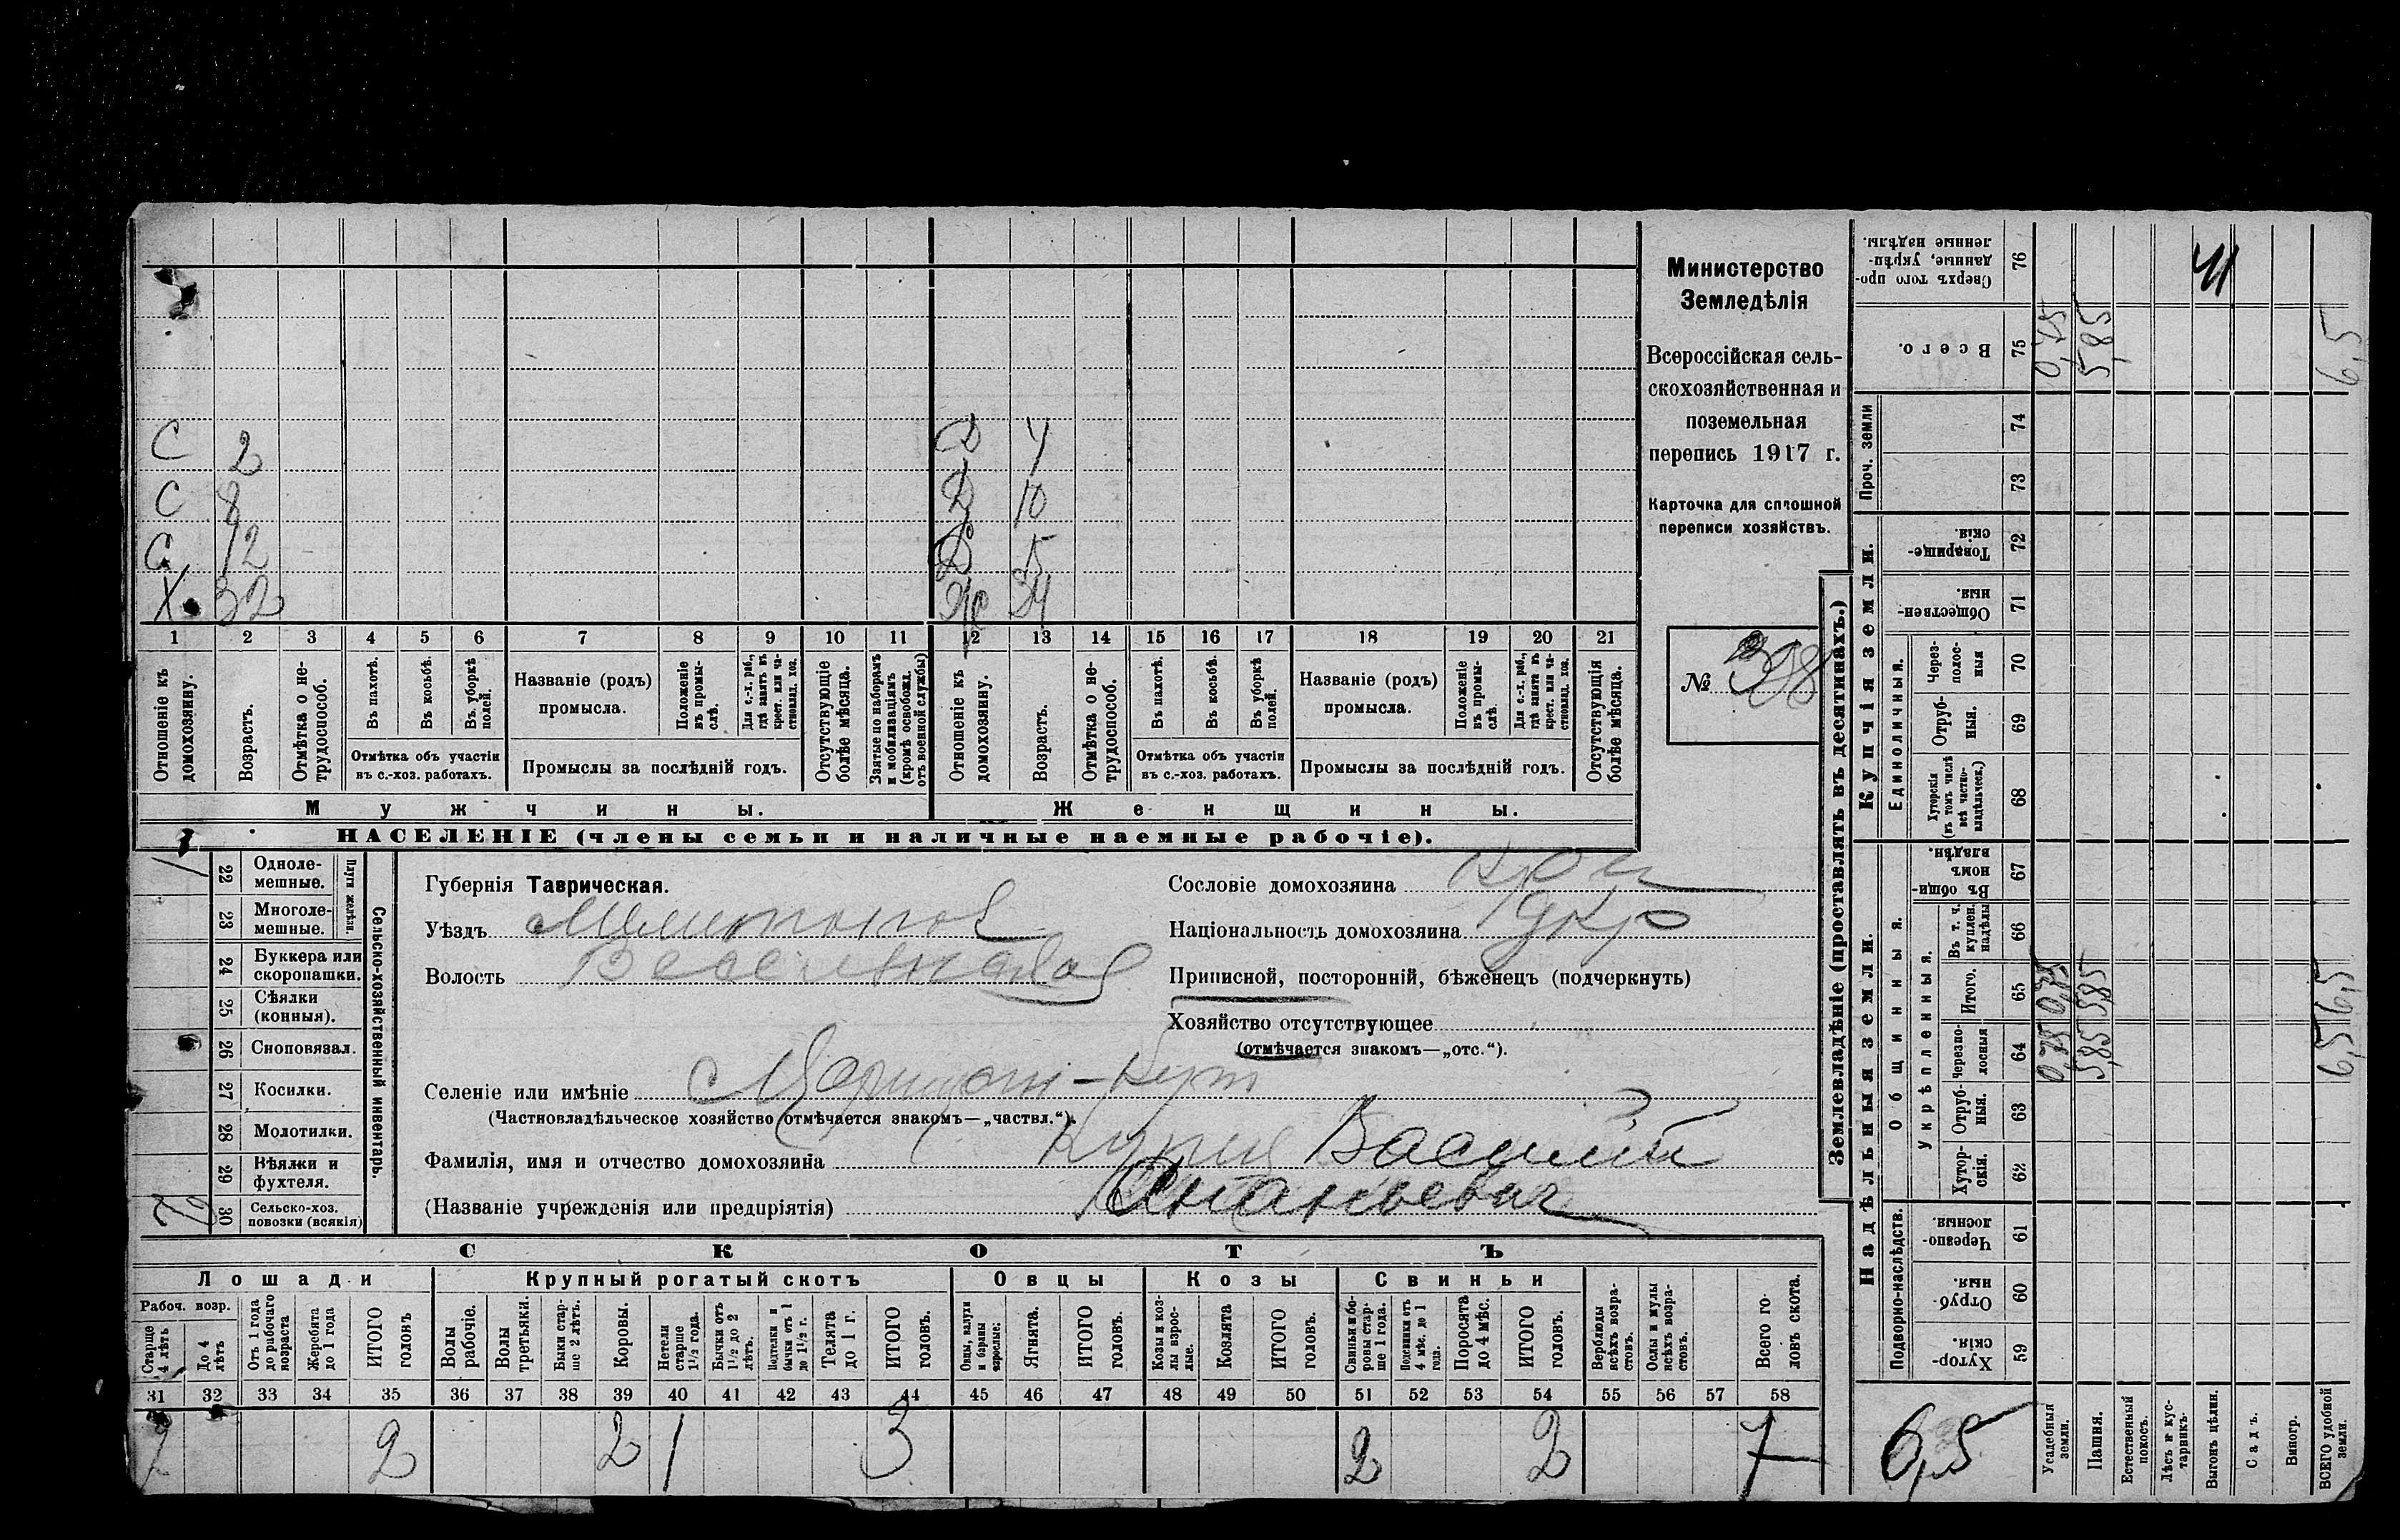 С 2 Д 4
С 8 Д 10
С 12 Д 5
Х 32 Ж 34
1 2 3 4 5 6 7 8 9 10 11 12 13 14 15 16 17 18 19 20 21
Отношеніе къ домохозяину.
Возрастъ.
Отмѣтка о нетрудоспособ.
Въ пахотѣ.
Въ косьбѣ.
Въ уборкѣ полей.
Отмѣтка объ участіи
въ с.-хоз. работахъ.
Названіе (родъ)
промысла.
Положеніе въ промыслѣ.
Для с.-х. раб., гдѣ занятъ въ крест. или частновлад. хоз.
Промыслы за послѣдній годъ.
Отсутствующіе болѣе мѣсяца.
Взятые по наборамъ и мобилизаціямъ (кромѣ освобожд. отъ военной службы)
Отношеніе къ домохозяину.
Возрастъ.
Отмѣтка о нетрудоспособ.
Въ пахотѣ.
Въ косьбѣ.
Въ уборкѣ полей.
Отмѣтка объ участіи
въ с.-хоз. работахъ.
Названіе (родъ)
промысла.
Положеніе въ промыслѣ.
Для с.-х. раб., гдѣ занята въ крест. или частновлад. хоз.
Промыслы за послѣдній годъ.
Отсутствующія болѣе мѣсяца.
Мужчины.
Женщины.
НАСЕЛЕНІЕ (члены семьи и наличные наемные рабочіе).
Министерство
Земледѣлія
Всероссійская сель-
скохозяйственная и
поземельная
перепись 1917 г.
Карточка для сплошной
переписи хозяйствъ.
№ 398
Сельско-хозяйственный инвентарь.
Плуги желѣзн.
1 22 Одноле-
мешные.
23 Многоле-
мешные.
24 Буккера или
скоропашки.
25 Сѣялки
(конныя).
26 Сноповязал.
27 Косилки.
28 Молотилки.
29 Вѣялки и
фухтеля.
30 Сельско-хоз.
повозки (всякія)
Губернія Таврическая.
Уѣздъ Мелитопол
Волость Веселовская
Селеніе или имѣніе Царицын-Кут
(Частновладѣльческое хозяйство отмѣчается знакомъ—„частвл.“).
Фамилія, имя и отчество домохозяина Василій
(Названіе учрежденія или предпріятія) Ананьевич
Сословіе домохозяина кре
Національность домохозяина укр
Приписной, посторонній, бѣженецъ (подчеркнуть)
Хозяйство отсутствующее
(отмѣчается знакомъ—„отс.“).
СКОТЪ
Лошади
Крупный рогатый скотъ
Овцы
Козы
Свиньи
Рабоч. возр.
Старше 4 лѣтъ
До 4 лѣтъ
Отъ 1 года до рабочаго возраста
Жеребята до 1 года
ИТОГО головъ
Волы рабочіе.
Волы третьяки.
Быки старше 2 лѣтъ.
Коровы.
Нетели старше 1 1/2 года.
Бычки отъ 1 1/2 до 2 лѣтъ.
Подтелки и бычки отъ 1 до 1 1/2 г.
Телята до 1 г.
ИТОГО головъ.
Овцы, валухи и бараны взрослые.
Ягнята.
ИТОГО головъ.
Козы и козлы взрослые.
Козлята
ИТОГО головъ.
Свиньи и боровы старше 1 года.
Подсвинки отъ 4 мѣс. до 1 года.
Поросята до 4 мѣс.
ИТОГО головъ.
Верблюды всѣхъ возрастовъ.
Ослы и мулы всѣхъ возрастовъ.
Всего головъ скота.
31 32 33 34 35 36 37 38 39 40 41 42 43 44 45 46 47 48 49 50 51 52 53 54 55 56 57 58
2 2 2 1 3 2 2 7
Землевладѣніе (проставлять въ десятинахъ.)
Надѣльныя земли.
Купчія земли.
Проч. земли
Подворно-наслѣдств.
Общинныя.
Укрѣпленныя.
Единоличныя.
Хуторскія. 59
Отрубныя. 60
Черезполосныя. 61
Хуторскія. 62
Отрубныя. 63
Черезполосныя 64 0,75 5,85 6,5
Итого. 65 5,85 6,5
Въ т. ч. куплен. надѣлы 66
Въ общинномъ владѣн. 67
Хуторскія (въ томъ числѣ всѣ частновладѣльческ.) 68
Отрубныя. 69
Черезполосныя 70
Общественныя. 71
Товарищескія 72
73
74
Всего. 75 5,85 6,5
Сверхъ того проданные, укрѣпленные надѣлы. 76
6,5
Усадебныя земли.
Пашня.
Естественный покосъ.
Лѣсъ и кустарникъ.
Выгонъ цѣлин.
Садъ.
Виногр.
ВСЕГО удобной земли.